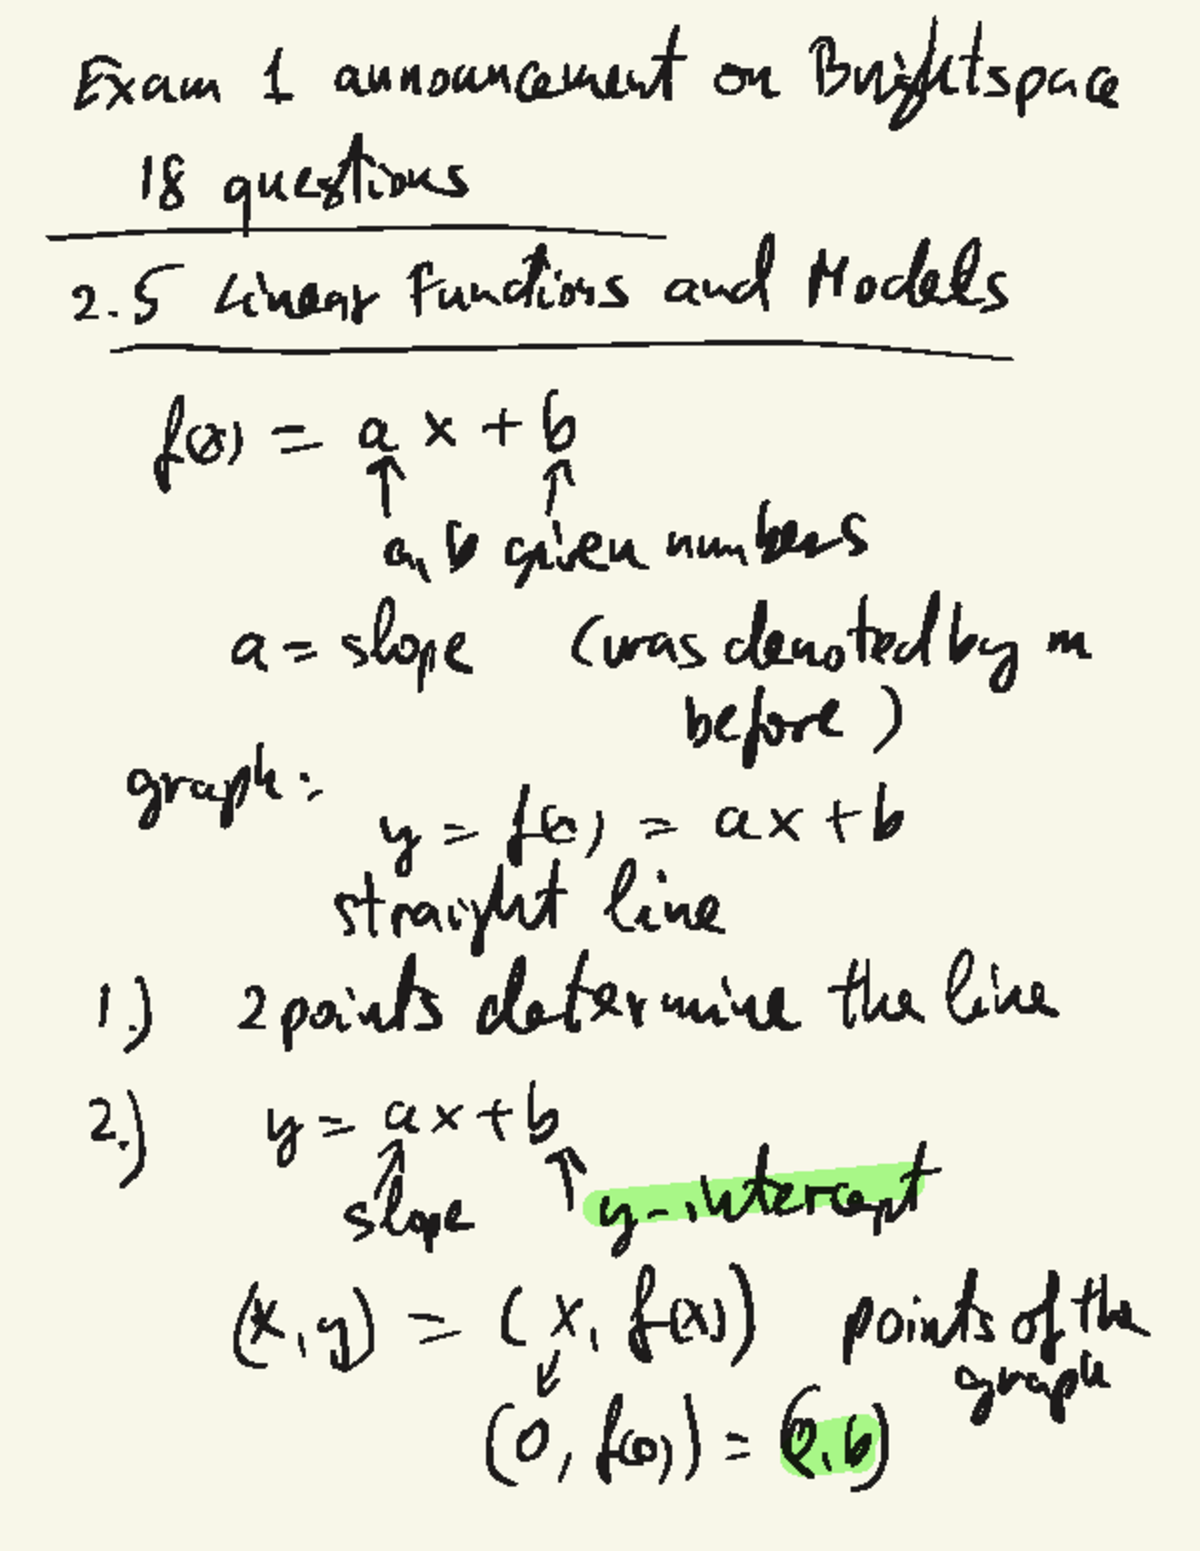 Exam 1 announcement on Brightspace
18 questions
2.5 Linear Functions and Models
f(x) = a x + b
a, b given numbers
a = slope (was denoted by m
before)
graph:
y = f(x) = ax + b
straight line
1.) 2 points determine the line
2.) y = ax + b
slope y-intercept
(x, y) = (x, f(x)) points of the
graph
(0, f(0)) = (0, b)